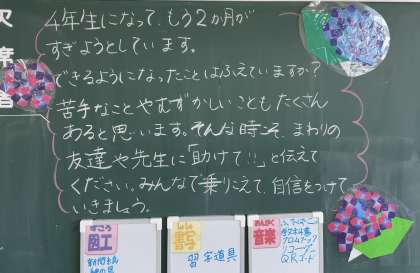 4年生になって、もう2か月が
すぎようとしています。
できるようになったことはふえていますか?
苦手なことやむずかしいこともたくさん
あると思います。そんな時こそ、まわりの
友達や先生に「助けて!!」と伝えて
ください。みんなで乗りこえて、自信をつけて
いきましょう。
欠席
ずこう
図工
新聞紙
しょしゃ
書写
習字道具
おんがく
音楽
教科書
リコーダー
QRコード